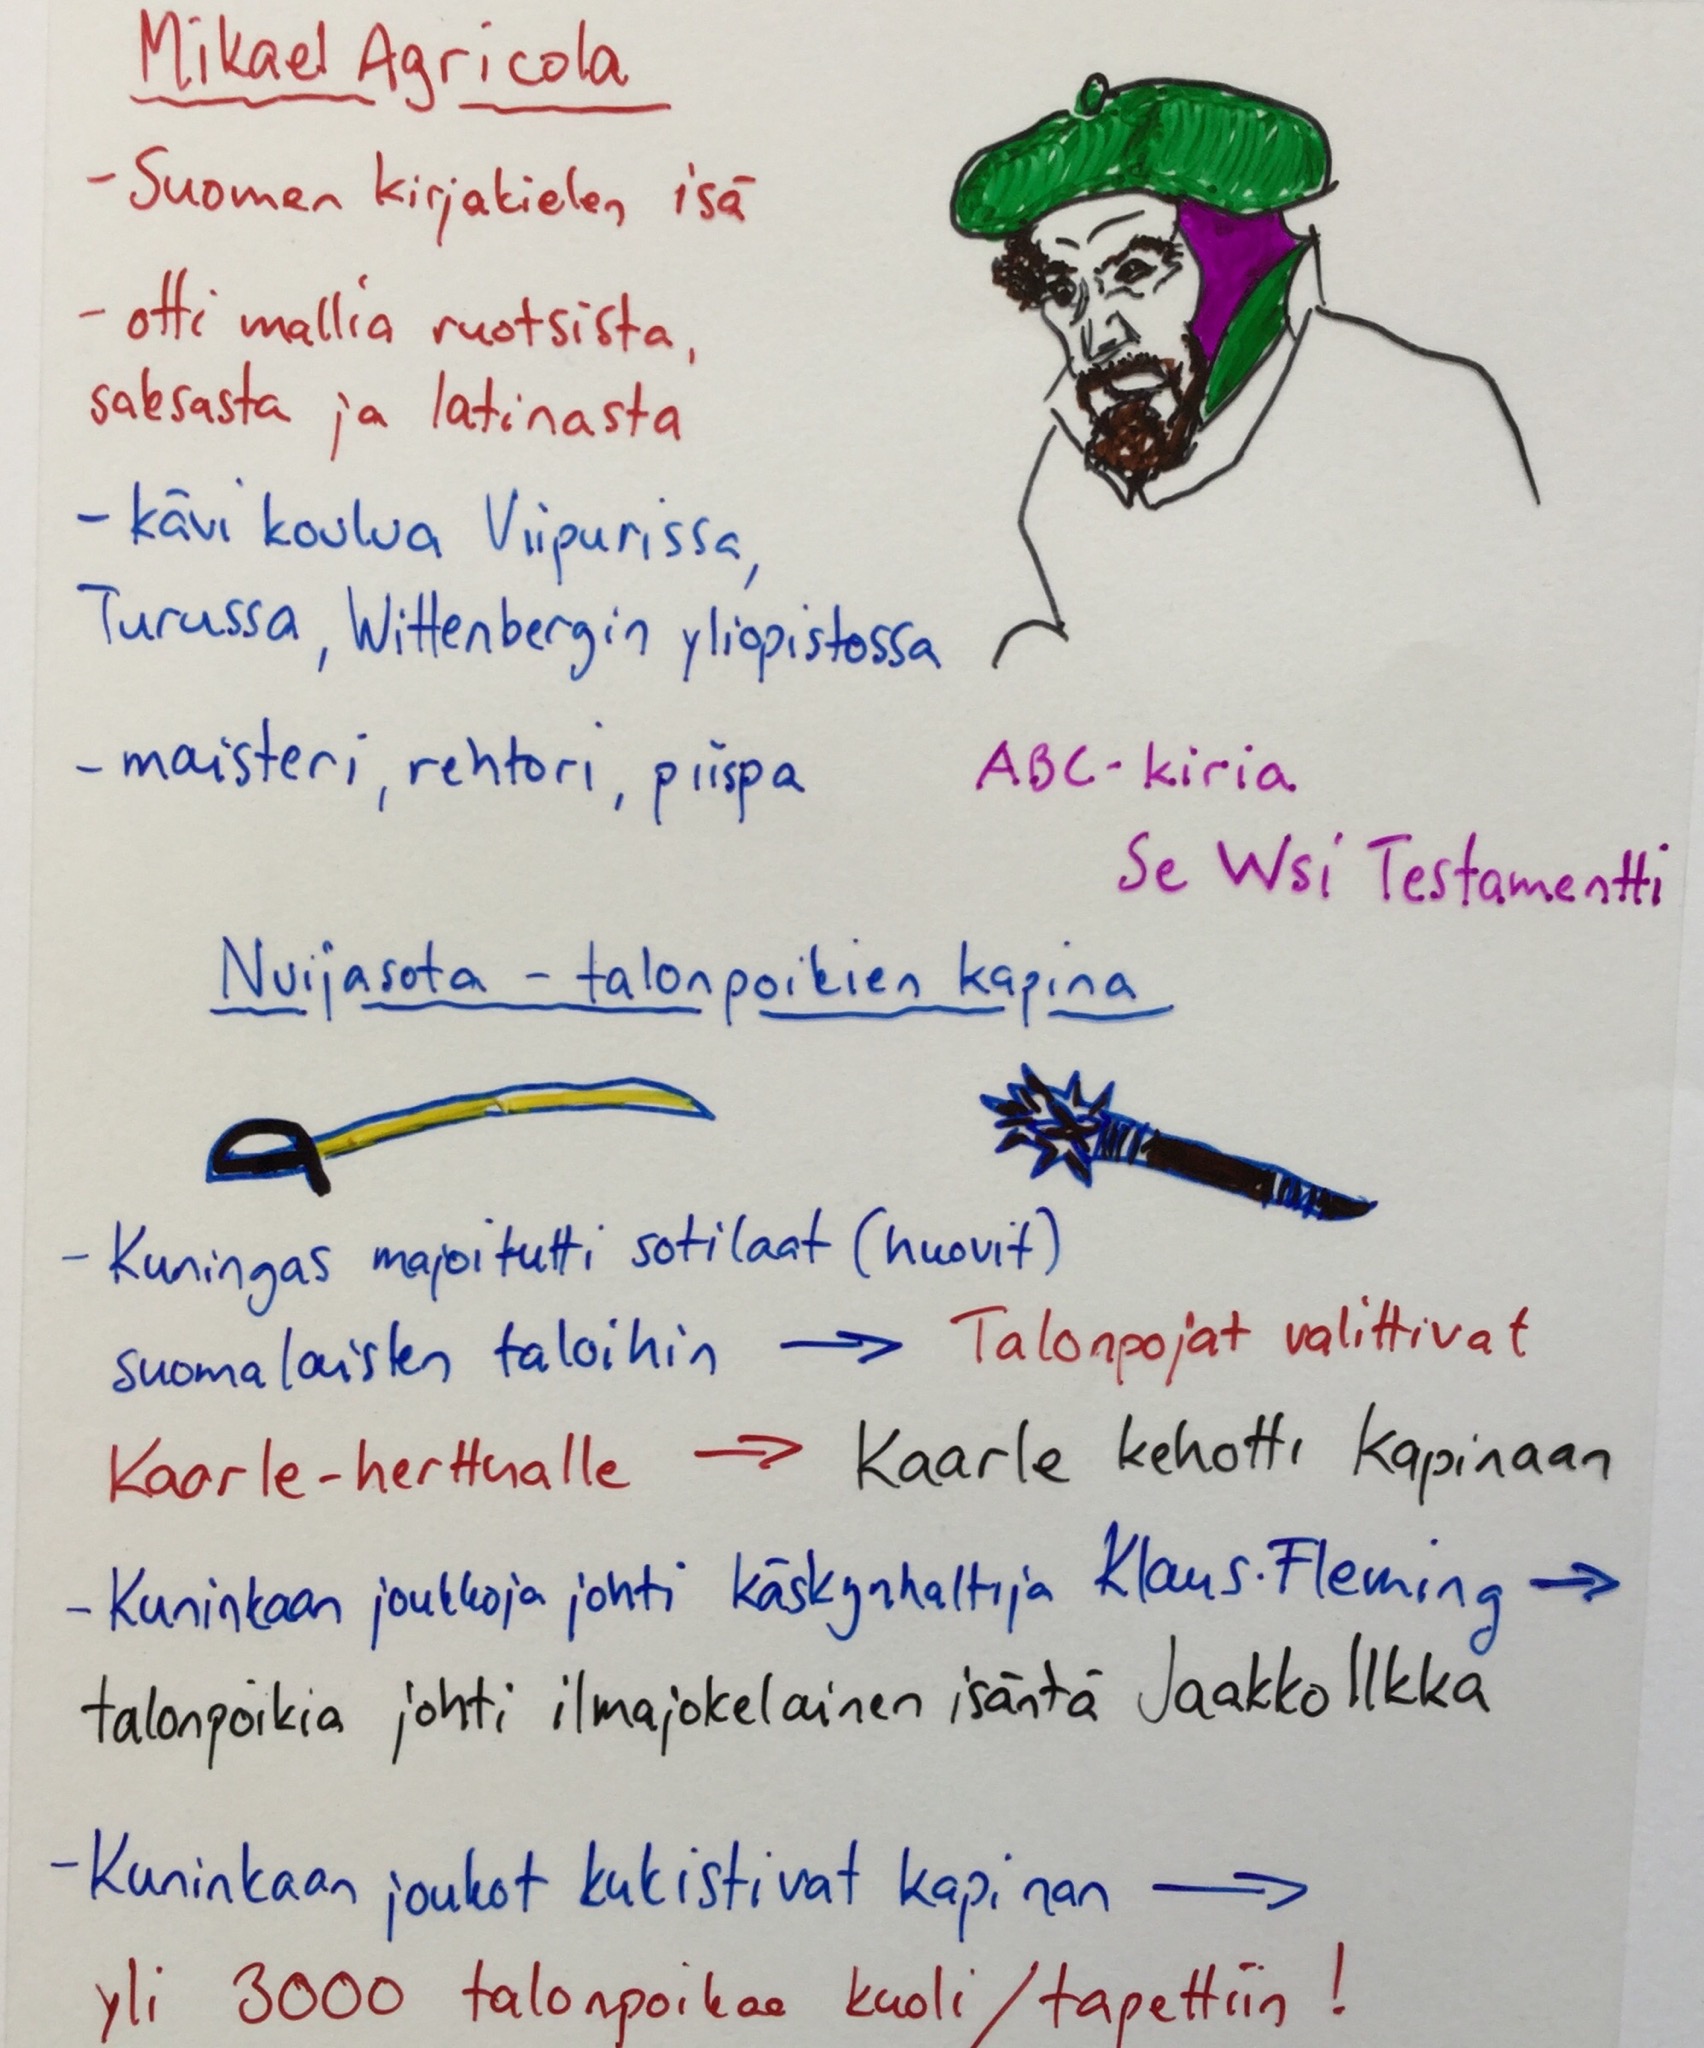 Mikael Agricola
- Suomen kirjakielen isä
- otti mallia ruotsista,
saksasta ja latinasta
- kävi koulua Viipurissa,
Turussa, Wittenbergin yliopistossa
- maisteri, rehtori, piispa
ABC-kiria
Se Wsi Testamentti
Nuijasota - talonpoikien kapina
- Kuningas majoitutti sotilaat (huovit)
suomalaisten taloihin → Talonpojat valittivat
Kaarle-herttualle → Kaarle kehotti kapinaan
- Kuninkaan joukkoja johti käskynhaltija Klaus Fleming →
talonpoikia johti ilmajokelainen isäntä Jaakko Ilkka
- Kuninkaan joukot kukistivat kapinan →
yli 3000 talonpoikaa kuoli/tapettiin!